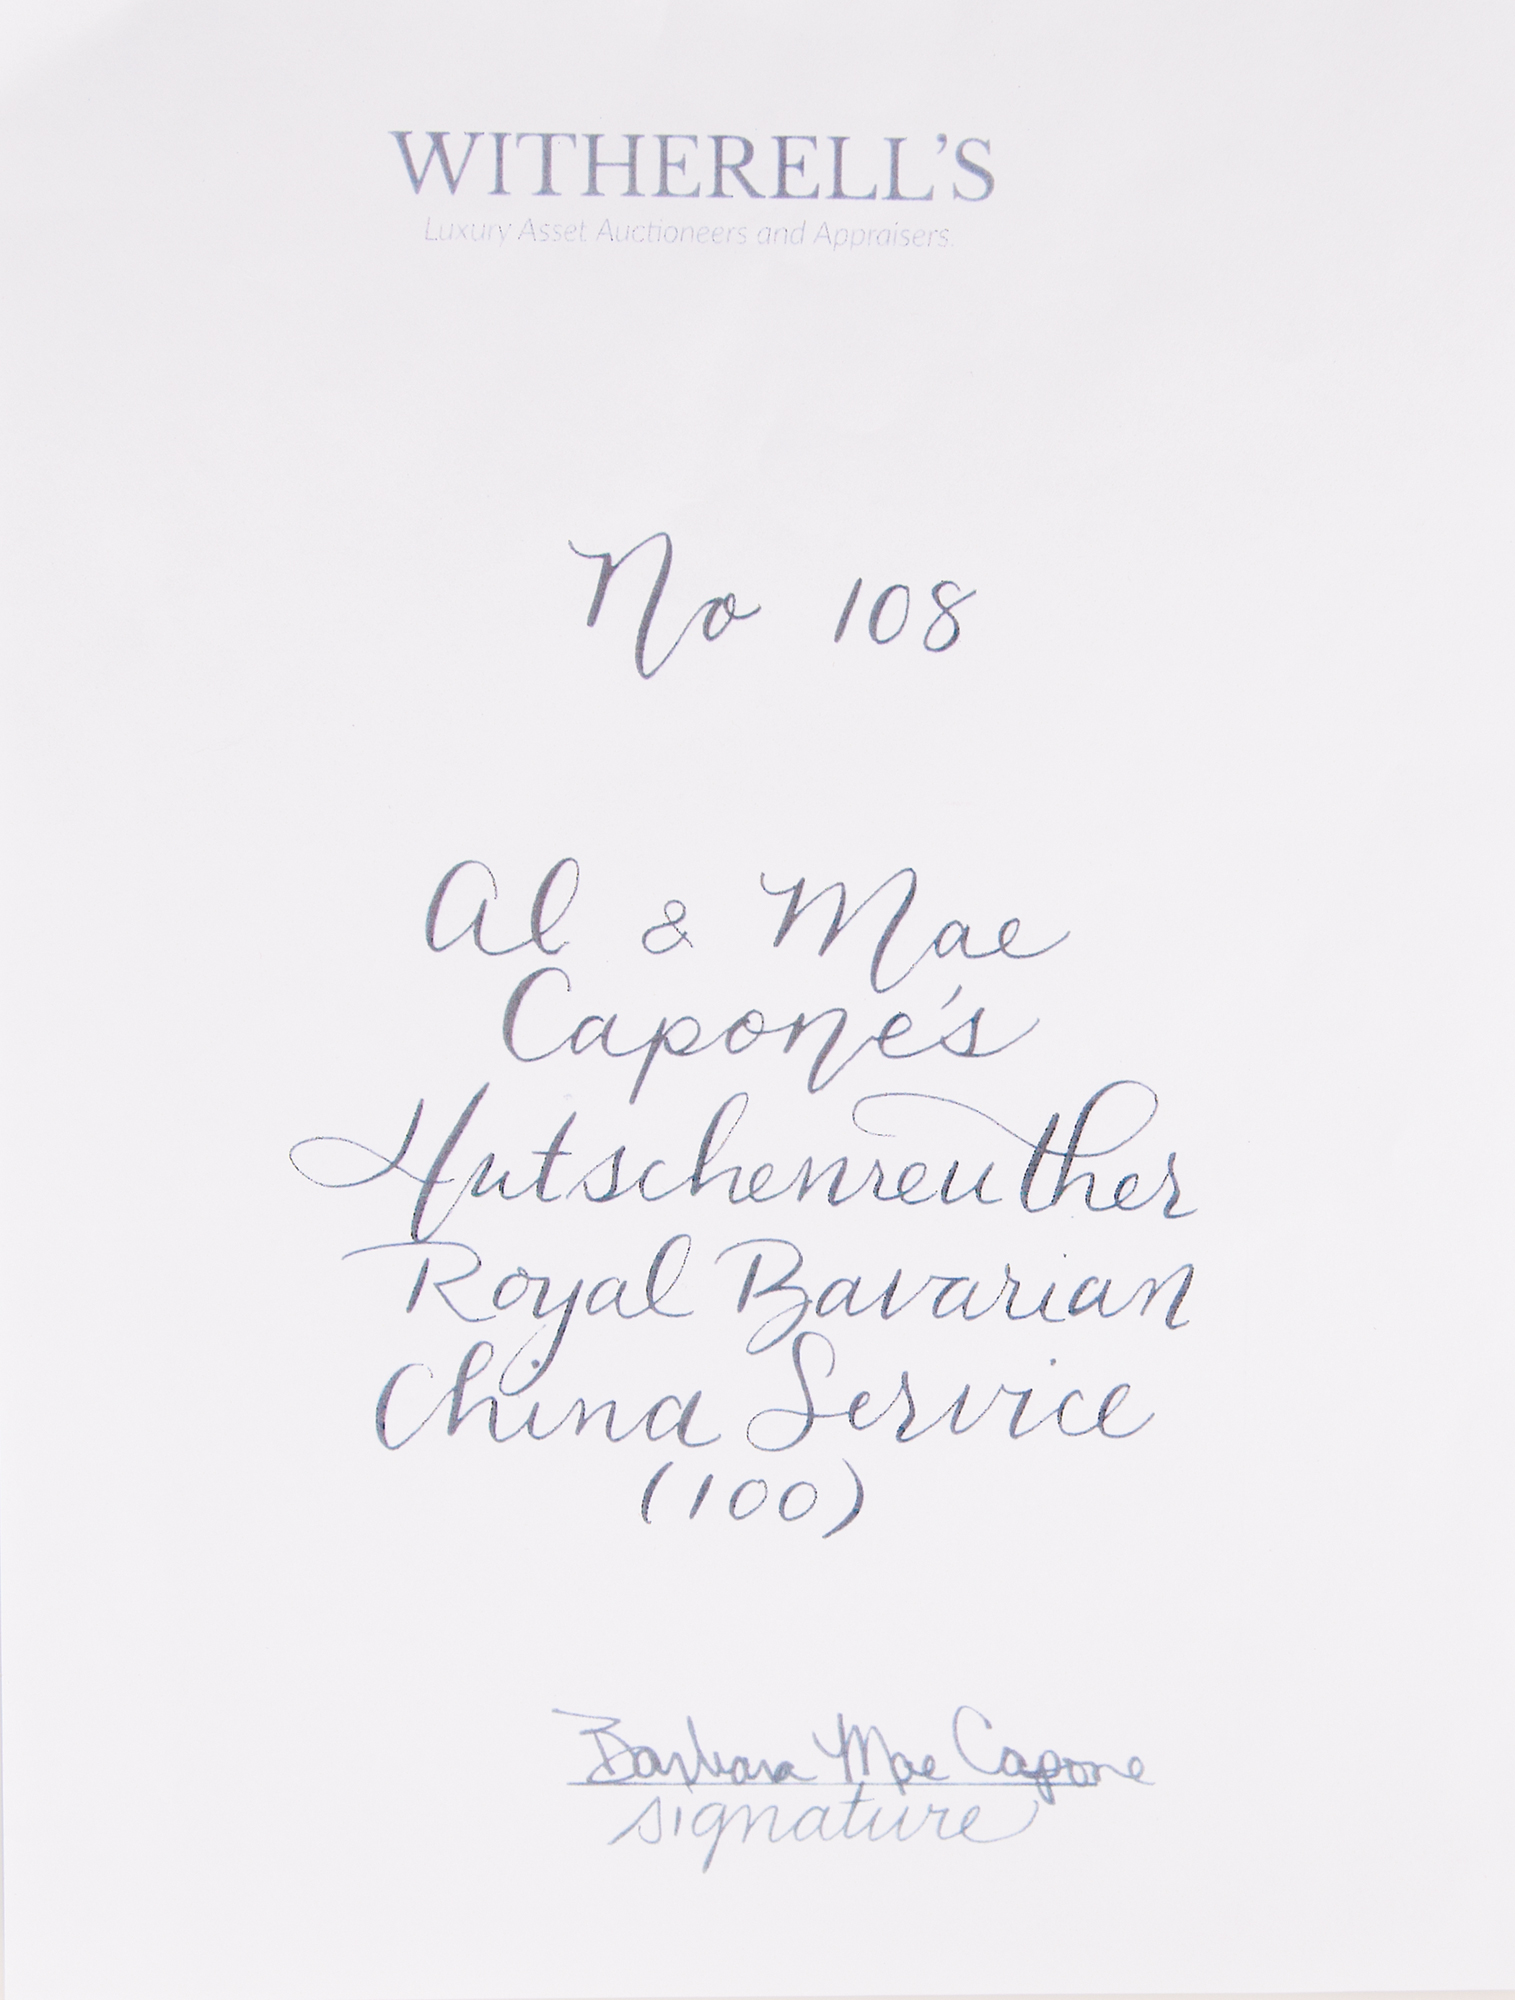 WITHERELL'S
Luxury Asset Auctioneers and Appraisers.
No 108
Al & Mae
Capone's
Hutschenreuther
Royal Bavarian
China Service
(100)
Barbara Mae Capone
signature